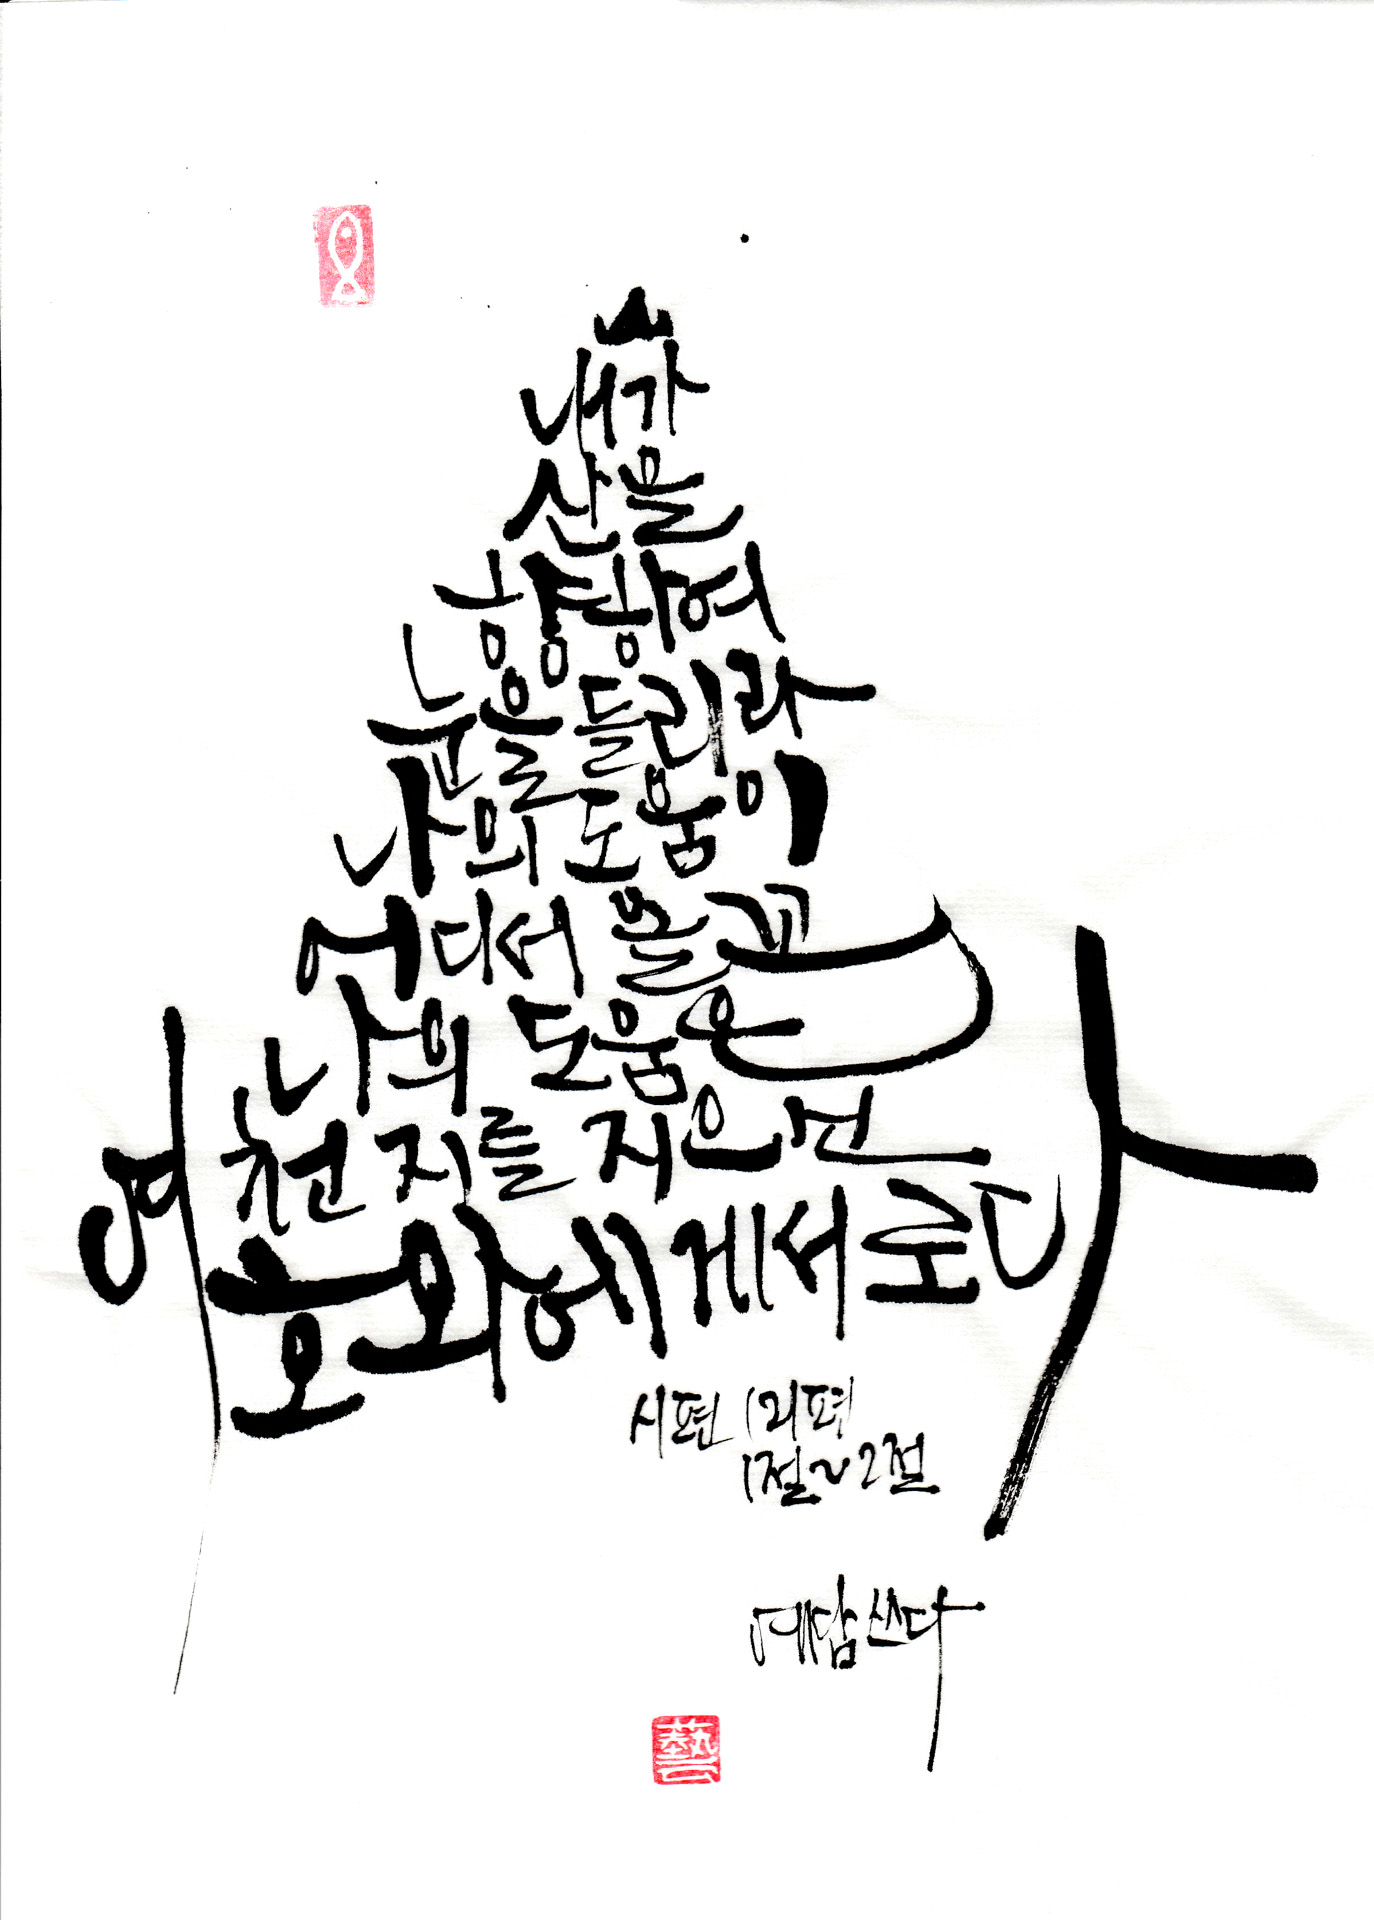 내가
산을
향하여
눈을 들리라
나의 도움이
어디서 올꼬
나의 도움은
천지를 지으신
여호와에게서로다
시편 121편
1절~2절
예담 쓰다
藝